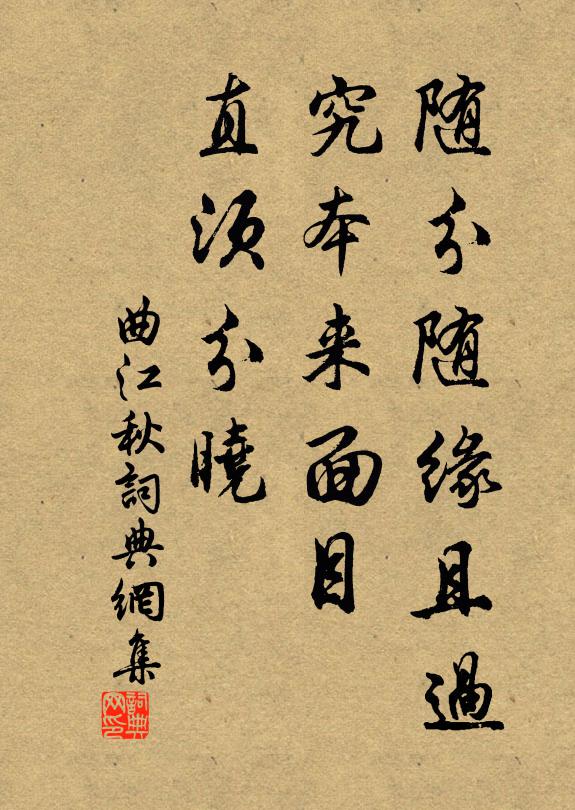 随分随缘且過
究本来面目
直須分曉
曲江秋詞典網集
詞典
网印